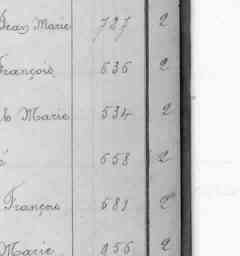 Jean Marie 727 2
François 636 2
b Marie 534 2
é 658 2
François 681 2
Marie 956 2